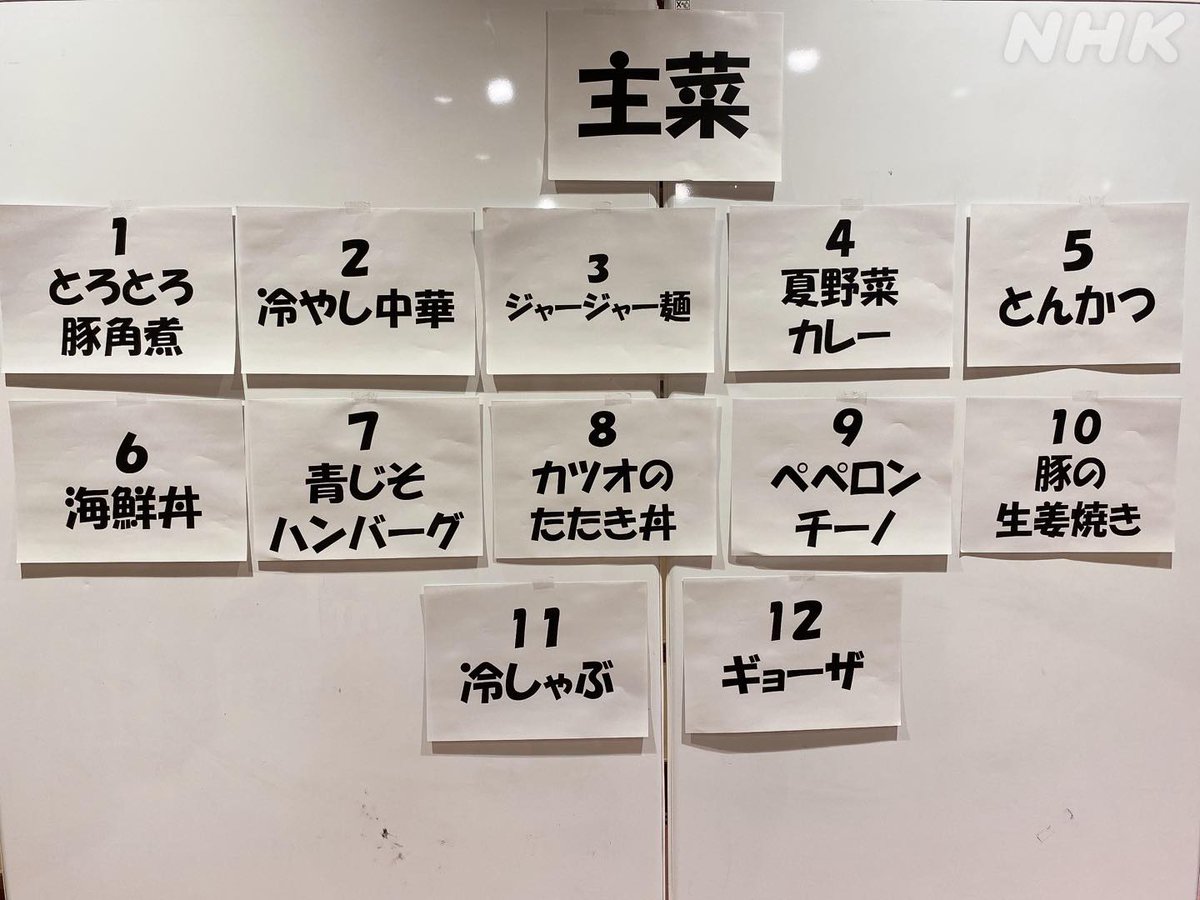 NHK
主菜
1
とろとろ
豚角煮
2
冷やし中華
3
ジャージャー麺
4
夏野菜
カレー
5
とんかつ
6
海鮮丼
7
青じそ
ハンバーグ
8
カツオの
たたき丼
9
ペペロン
チーノ
10
豚の
生姜焼き
11
冷しゃぶ
12
ギョーザ